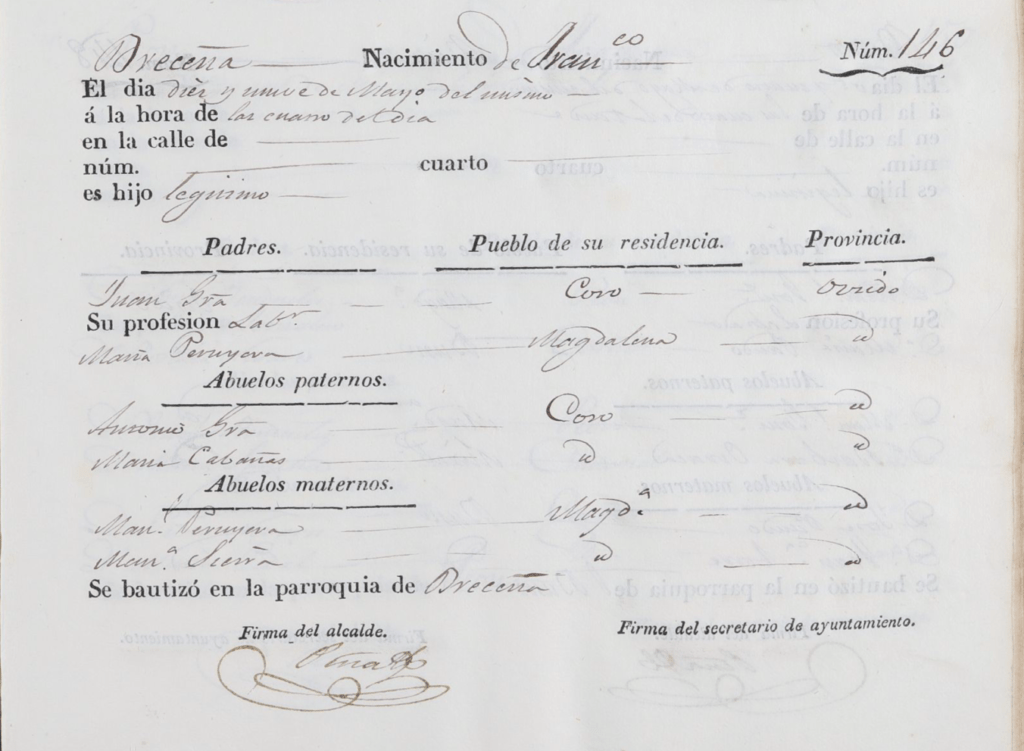 Breceña Nacimiento de Fran.co Núm. 146
El dia diez y nueve de Mayo del mismo
á la hora de las cuatro del dia
en la calle de
núm. cuarto
es hijo legitimo
Padres. Pueblo de su residencia. Provincia.
Juan Gra Coro Oviedo
Su profesion Labr.
Maria Peruyera Magdalena id
Abuelos paternos.
Antonio Gra Coro id
Maria Cabañas id id
Abuelos maternos.
Man.l Peruyera Magd.a id
Man.a Sierra id id
Se bautizó en la parroquia de Breceña
Firma del alcalde. Firma del secretario de ayuntamiento.